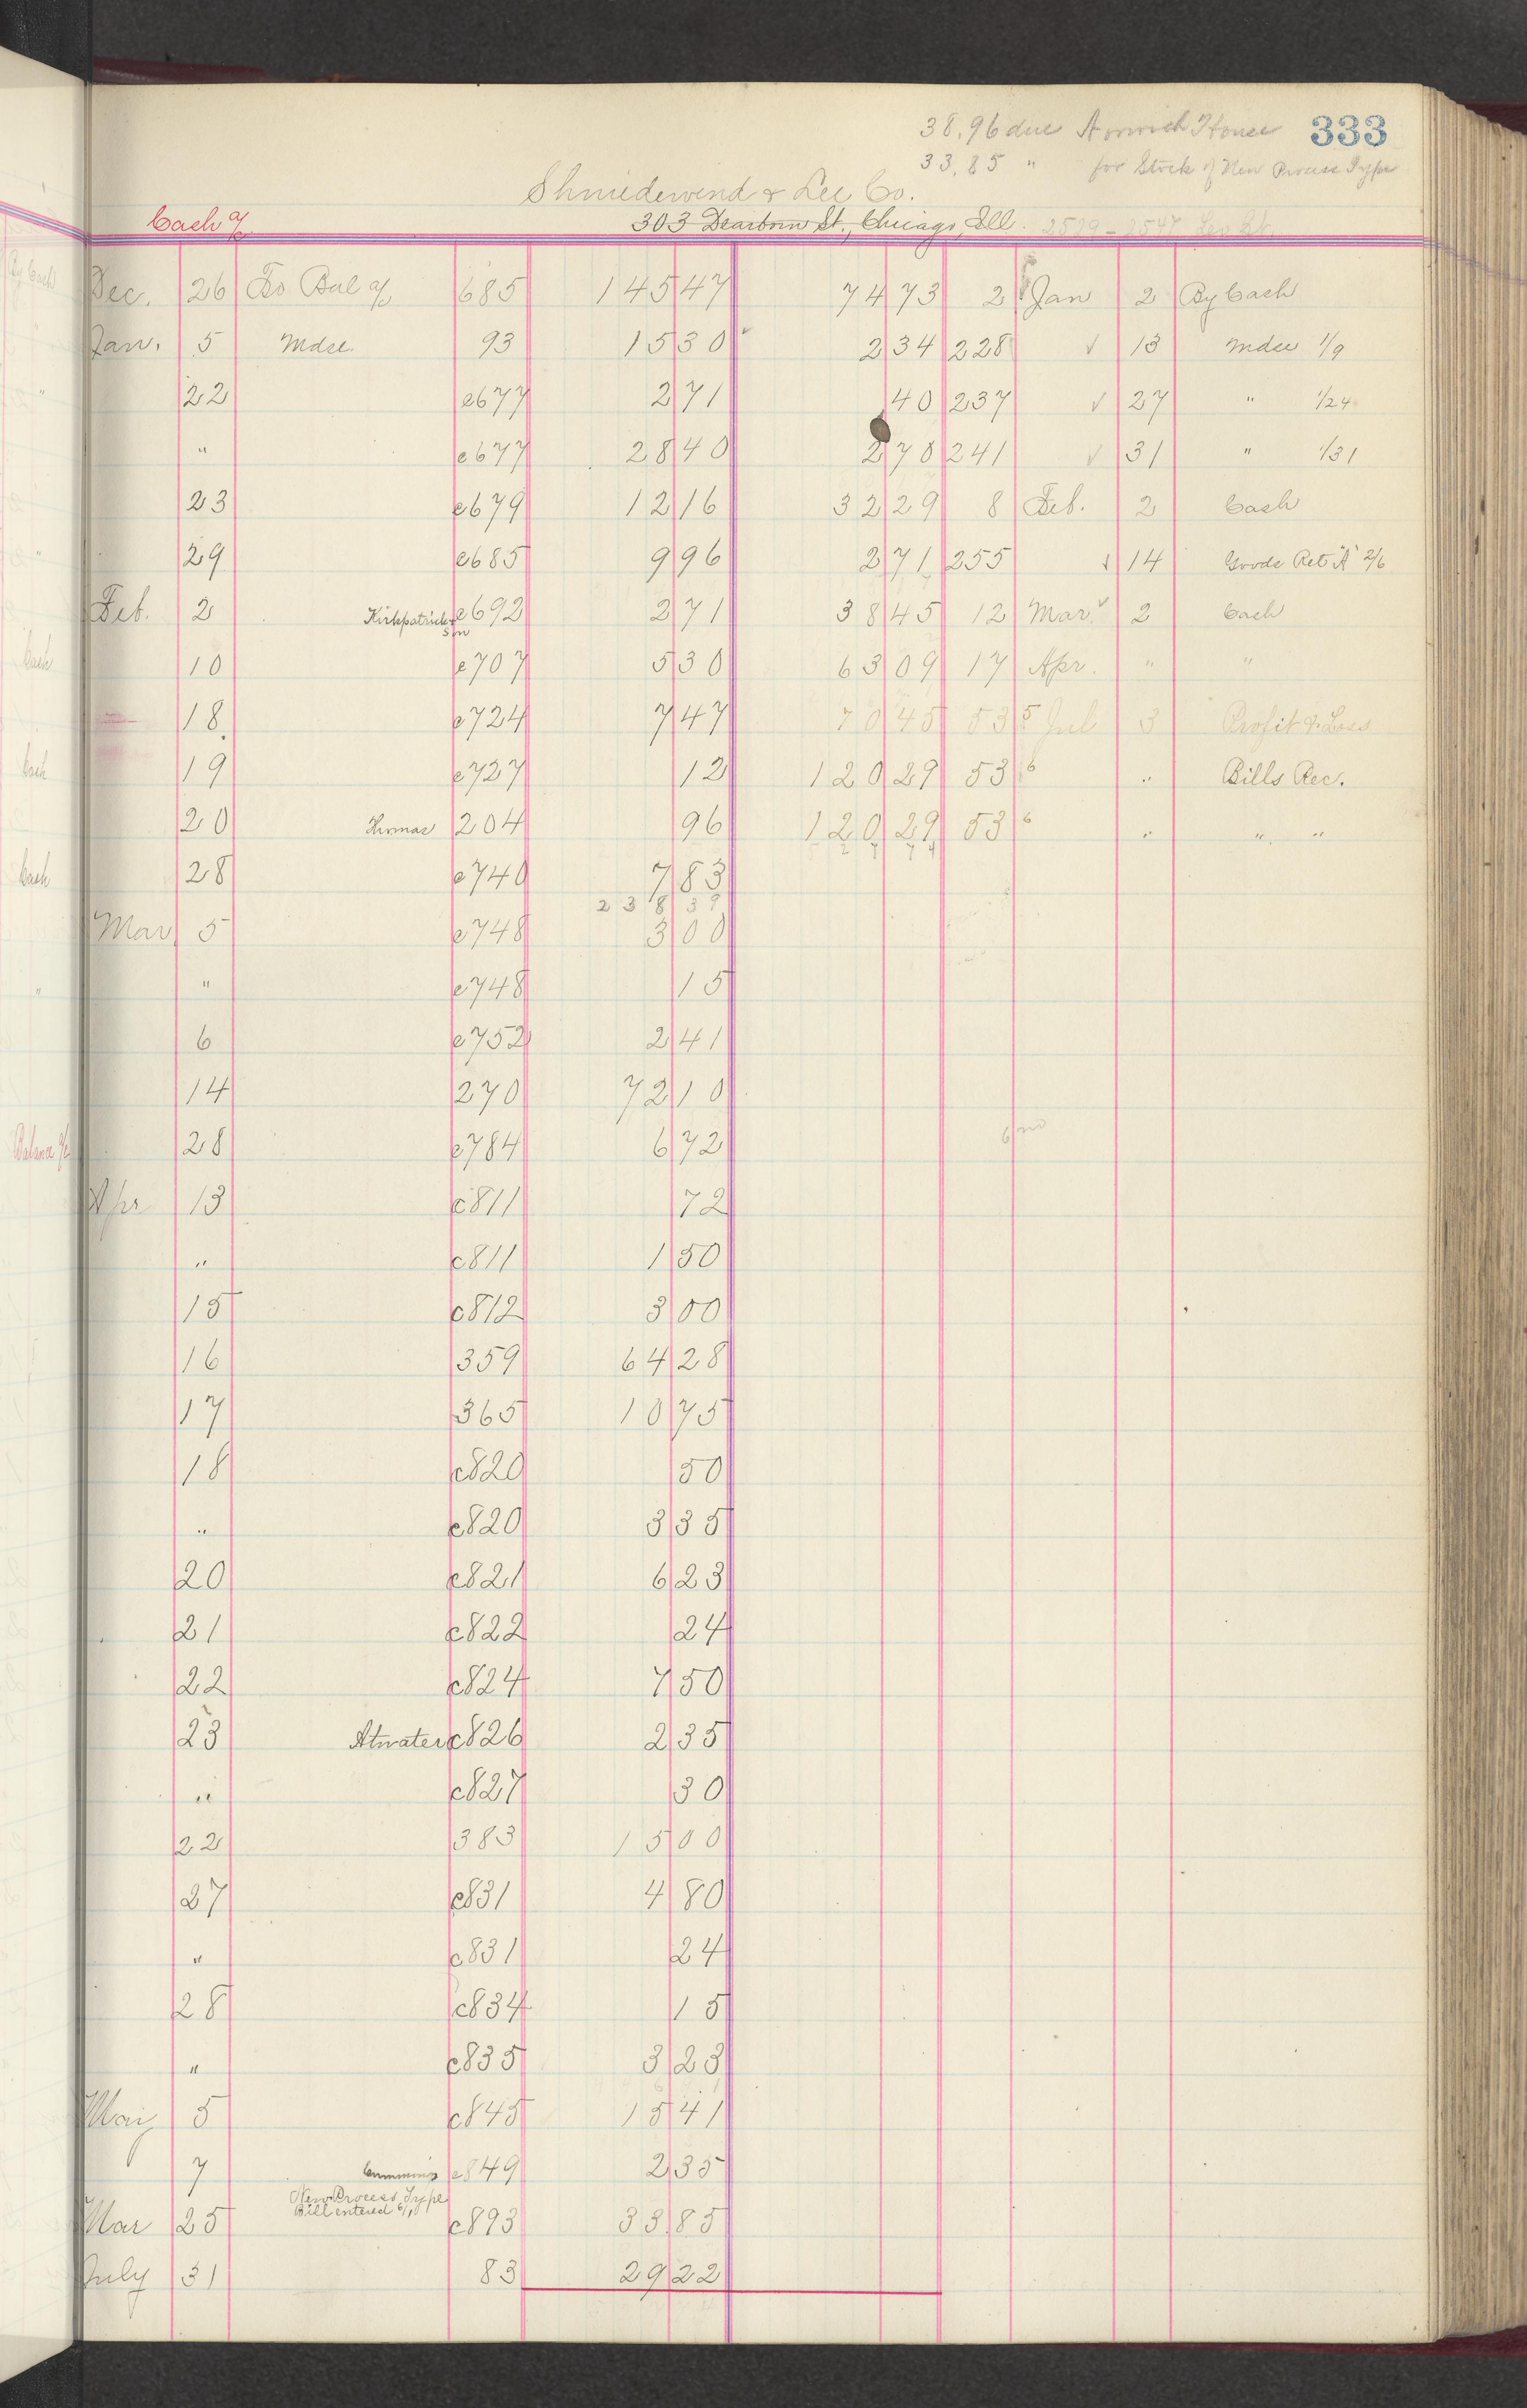 38.96 due Norwich House 333
33.85 " for Stock of New Process Type
Shniedewend & Lee Co.
Cash a/c 303 Dearborn St., Chicago, Ill. 2529-2547 Leo St.
Dec. 26 To Bal a/c 685 145 47 74 73 2 Jan 2 By Cash
Jan. 5 Mdse. 93 15 30 2 34 228 ✓ 13 Mdse 1/9
22 c677 2 71 40 237 ✓ 27 " 1/24
" c677 28 40 2 70 241 ✓ 31 " 1/31
23 c679 12 16 32 29 8 Feb. 2 Cash
29 c685 9 96 2 71 255 ✓ 14 Goods Ret'd 2/6
Feb. 2 Kirkpatrick & Sn c692 2 71 38 45 12 Mar. 2 Cash
10 c707 5 30 63 09 17 Apr. " "
18 c724 7 47 70 45 53 5 Jul 3 Profit & Loss
19 c727 12 120 29 53 6 " Bills Rec.
20 Thomas 204 96 120 29 53 6 " " "
28 c740 7 83
238 39
Mar 5 c748 3 00
" c748 15
6 c752 2 41
14 270 72 10
28 c784 6 72
6 mo
Apr 13 c811 72
" c811 1 50
15 c812 3 00
16 359 64 28
17 365 10 75
18 c820 50
" c820 3 35
20 c821 6 23
21 c822 24
22 c824 7 50
23 Atwater c826 2 35
" c827 30
22 383 15 00
27 c831 4 80
" c831 24
28 c834 15
" c835 3 23
May 5 c845 15 41
7 Cummings c849 2 35
New Process Type
Bill entered 6/10
Mar 25 c893 33 85
July 31 83 29 22
By Cash
Cash
Cash
Cash
Balance a/c